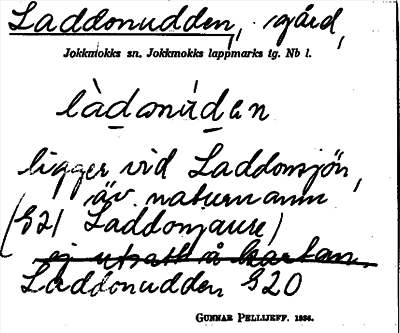 Laddonudden, gård,
Jokkmokks sn. Jokkmokks lappmarks tg. Nb l.
làdonúden
ligger vid Laddonsjön,
äv. naturnamn
(G21 Laddonjaure)
ej utsatt å kartan.
Laddonudden G20
GUNNAR PELLIJEFF. 1956.